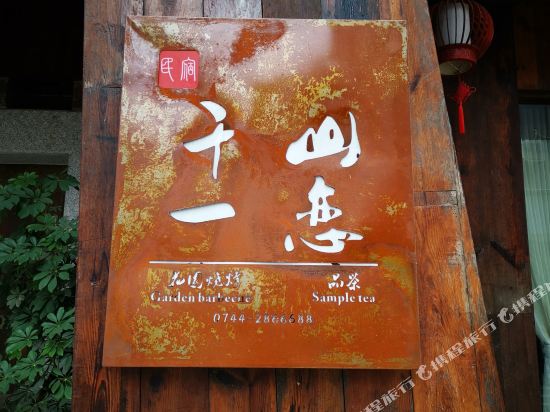 民宿
山恋
千一
花园烧烤
Garden barbecue
品茶
Sample tea
0744-2866688
携程旅行
携程旅行